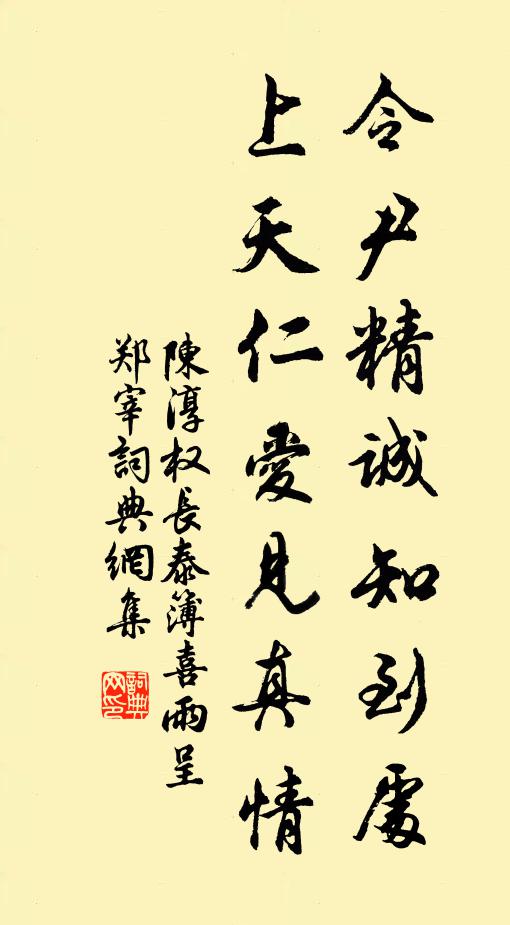 令尹精誠知到處
上天仁愛見真情
陳淳权長泰簿喜雨呈
郑宰詞典網集
詞典
网印